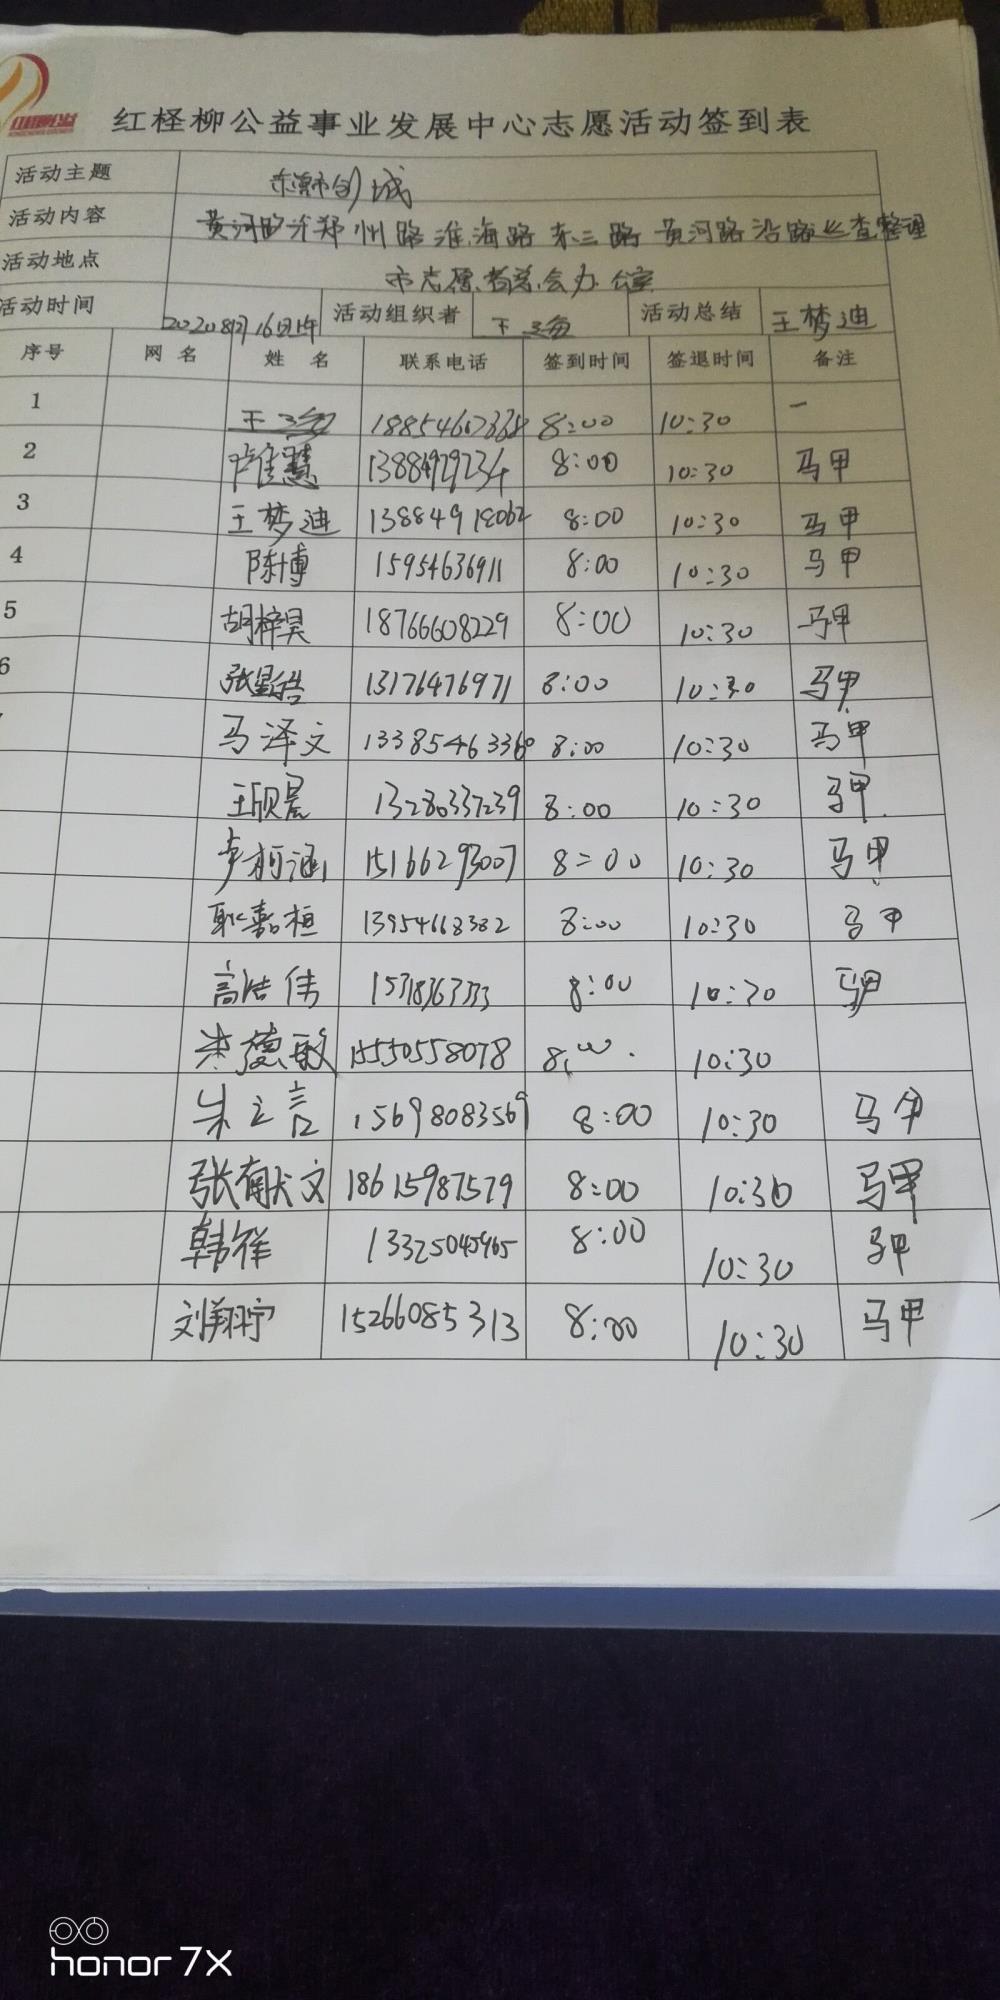 红柽柳公益
红柽柳公益事业发展中心志愿活动签到表
活动主题 东营市创城
活动内容 黄河路沂州路淮海路东三路黄河路沿路巡查整理
活动地点 市志愿者总会办公室
活动时间 2020 8月16日上午 活动组织者 王 活动总结 王梦迪
序号 网名 姓名 联系电话 签到时间 签退时间 备注
1 王 8:00 10:30 一
2 卢佳慧 8:00 10:30 马甲
3 王梦迪 8:00 10:30 马甲
4 陈博 15954636911 8:00 10:30 马甲
5 胡梓昊 18766608229 8:00 10:30 马甲
6 张 13176476971 8:00 10:30 马甲
马泽文 13385463360 8:00 10:30 马甲
王欣晨 13280337239 8:00 10:30 马甲
卢柯涵 15166293007 8:00 10:30 马甲
耿嘉桓 13954668382 8:00 10:30 马甲
高浩伟 8:00 10:30 马甲
德敏 15550558078 8:00 10:30
朱立言 15698083569 8:00 10:30 马甲
张献文 18615987579 8:00 10:30 马甲
韩祥 13325045965 8:00 10:30 马甲
刘翔宇 15266085313 8:00 10:30 马甲
honor 7X